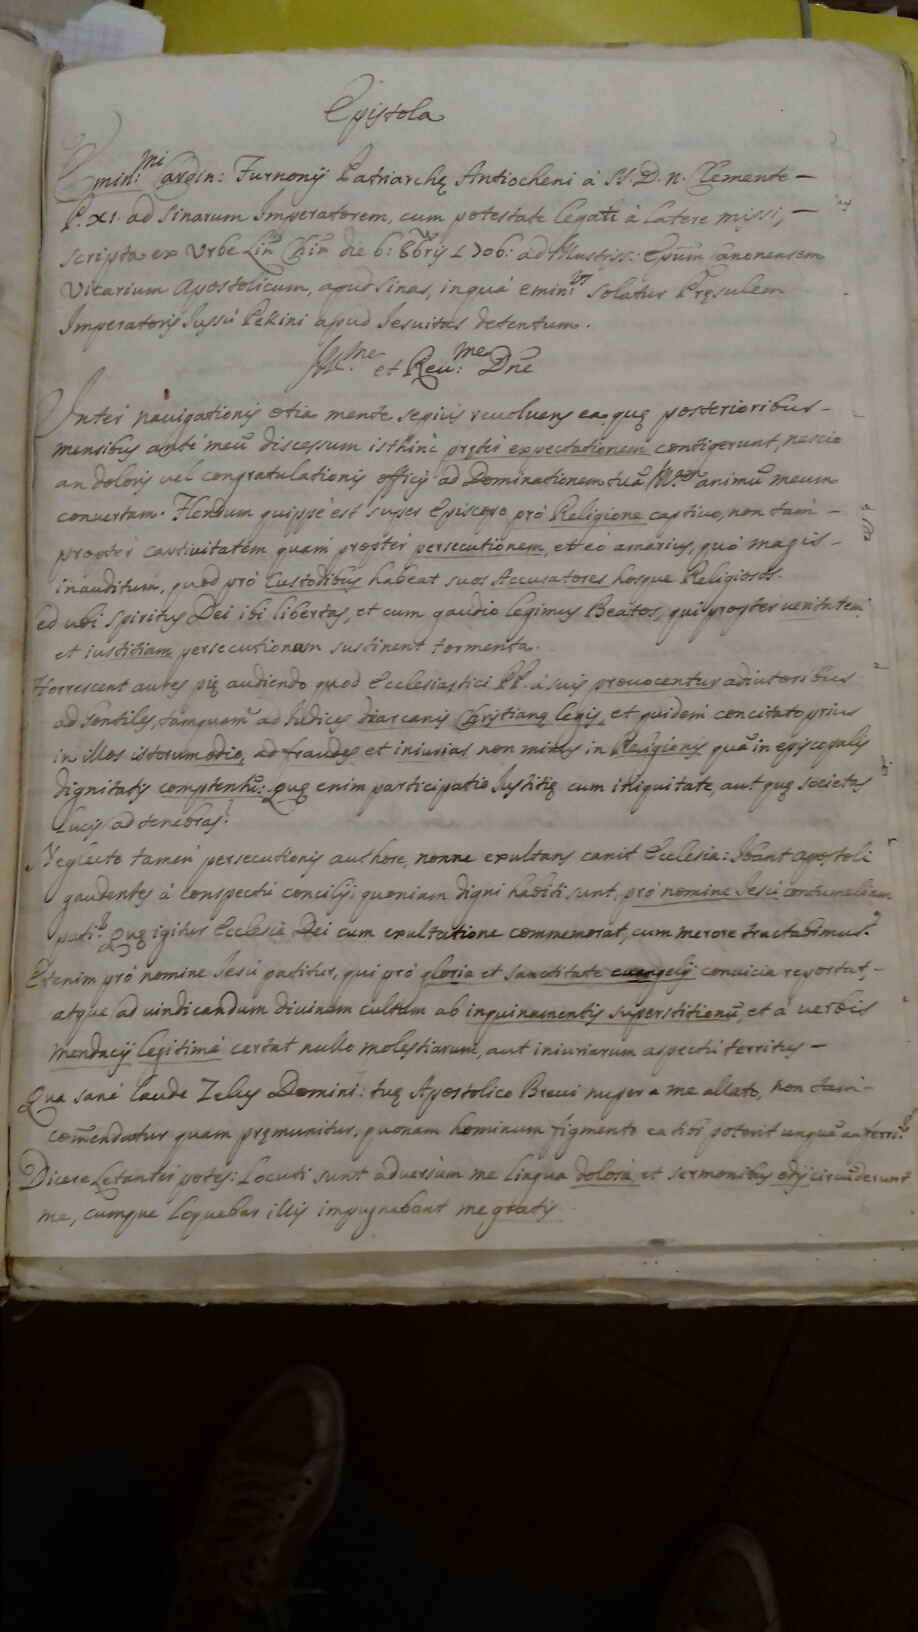 Epistola
Emin:mi Cardin: Turnonij Patriarchę Antiocheni á SS. D. n. Clemente –
P. XI. ad Sinarum Imperatorem, cum potestate legati à latere missi, –
scripta ex Urbe Lin Chin die 6: 8bris 1706: ad Illustriss: Epũm Canonensem
Vicarium Apostolicum, apud Sinas, in quá emin: solatur Pręsulem
Imperatoris Jussú Pekini apud Jesuitas detentum.
Ill.me et Reu:me Dñe
Inter navigationis otia mente sepius revoluens ea, quę posterioribus –
mensibus anté meũ discessum isthinc pręter expectationem contigerunt, nescio
an doloris vel congratulationis officij ad Dominationem tuã Ill.am animũ meum
convertam. Flendum quippé est super Episcopo pró Religione captivo, non tam –
propter captivitatem quam propter persecutionem, et eó amarius, quó magis –
inauditum, quod pró Custodibus habeat suos Accusatores hosque Religiosos.
ed ubi Spiritus Dei ibi libertas, et cum gaudio legimus Beatos, qui propter veritatem
et iustitiam persecutionum sustinent tormenta.
Horrescent aures pię audiendo quod Ecclesiastici PP. á suis provocentur adiutoribus
ad Gentiles, tamquam ad Judices diarcanis Christianę legis, et quidem concitato prius
in illos istorum odio, ad fraudes et iniurias non minus in Religionis quã in episcopalis
dignitatis comptentũ: Quę enim participatio Justitię cum iniquitate, aut quę societas
Lucis ad tenebras?
Neglecto tamen persecutionis authore, nonne exultans canit Ecclesia: Ibant apostoli
gaudentes á conspectu concilij quoniam digni habiti sunt, pró nomine Jesu contumeliam
pati? Quę igitur Ecclesia Dei cum exultatione commemorat, cum merore tractabimus?
Etenim pró nomine Jesu patitur, qui pró gloria et sanctitate euangelij convicia reportat –
atque ad vindicandum divinum cultum ab inquinamentis superstitionũ, et á verbis
mendacij legitimé certat nullo molestiarum, aut iniuriarum aspectu territus –
Qua sané laude Zelus Domini: tuę Apostolico Brevi nuper a me allato, non tam –
com̃endatur quam pręmunitur. quonam hominum figmento ea tibi poterit unquã auferri?
Dicere Letanter potes: Locuti sunt adversum me lingua dolosa et sermonibus odij circũderunt
me, cumque loquebar illis impugnabant me gratis